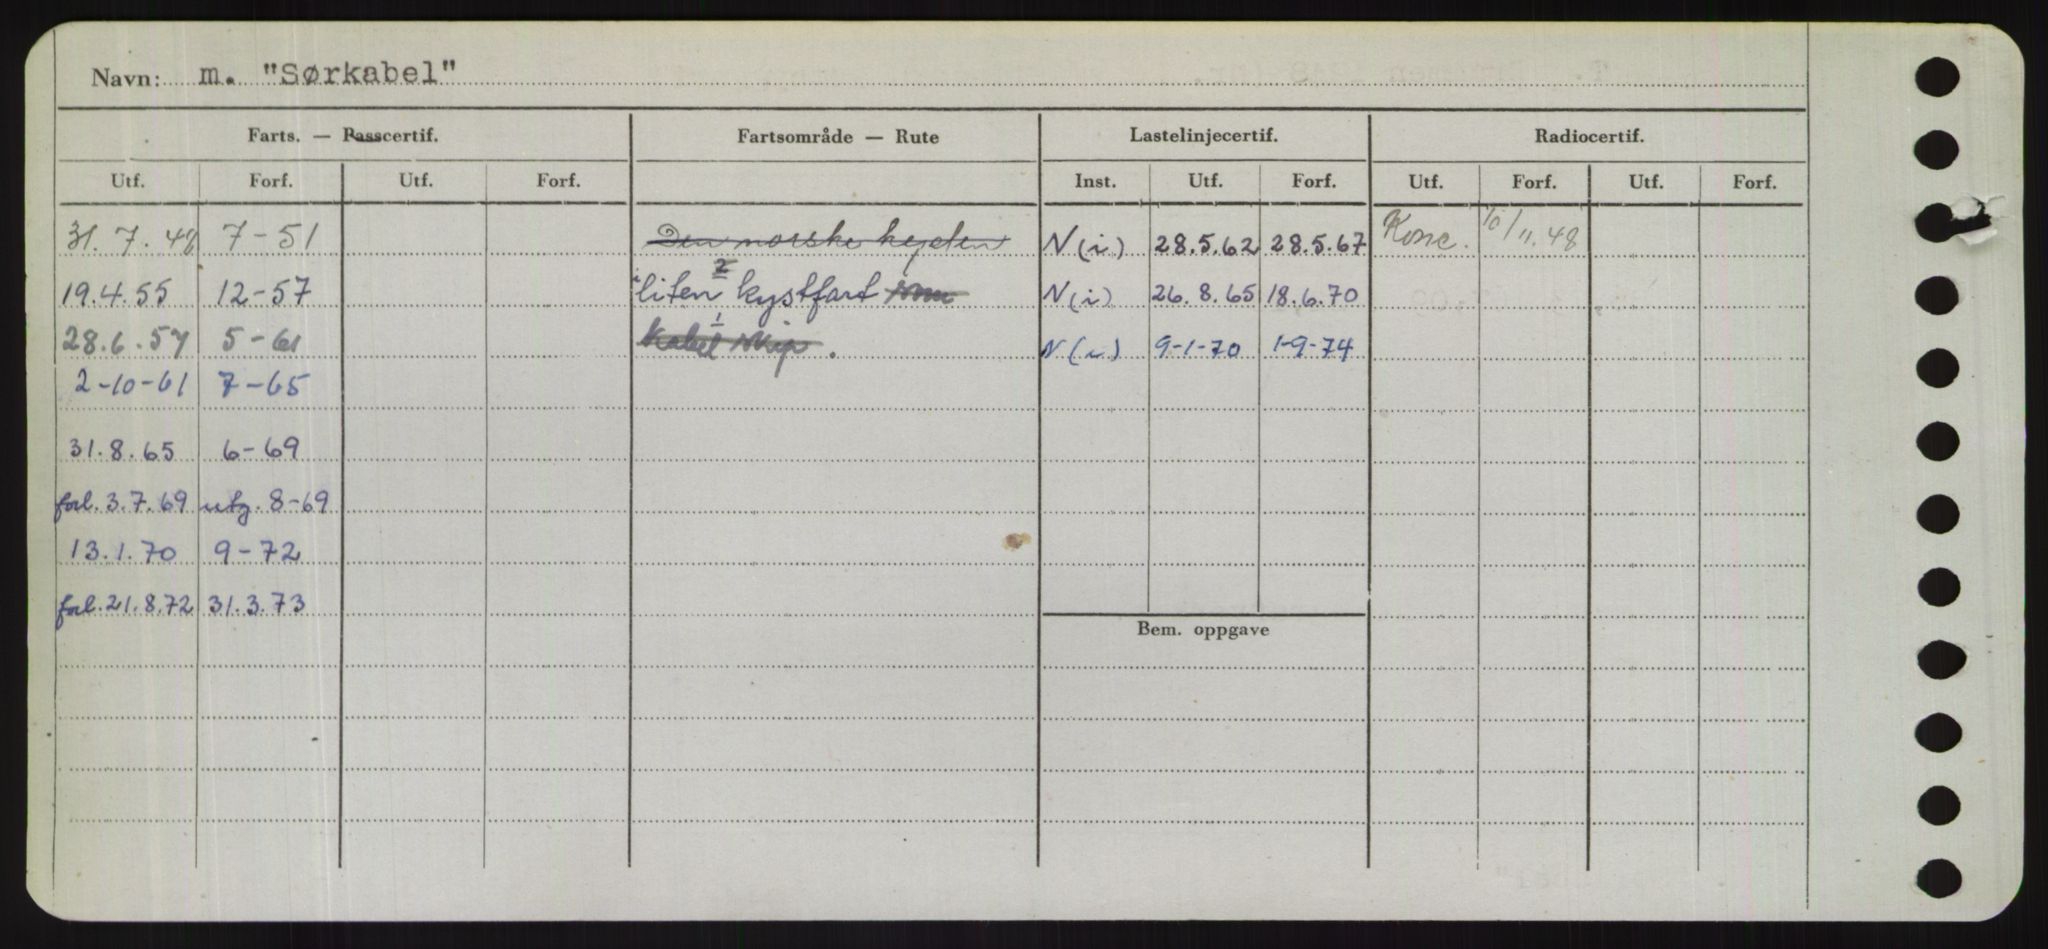 Navn: m. "Sørkabel"
Farts. — Passcertif. Fartsområde — Rute Lastelinjecertif. Radiocertif.
Utf. Forf. Utf. Forf. Inst. Utf. Forf. Utf. Forf. Utf. Forf.
31. 7. 48 7-51 Den norske kysten N (i) 28.5.62 28.5.67 Konc. 10/11.48
19.4.55 12-57 liten 2 kystfart som N (i) 26.8.65 18.6.70
28.6.57 5-61 kabel 1 skip. N (i) 9-1-70 1-9-74
2-10-61 7-65
31.8.65 6-69
forl. 3.7.69 utg. 8-69
13.1.70 9-72
forl. 21.8.72 31.3.73
Bem. oppgave